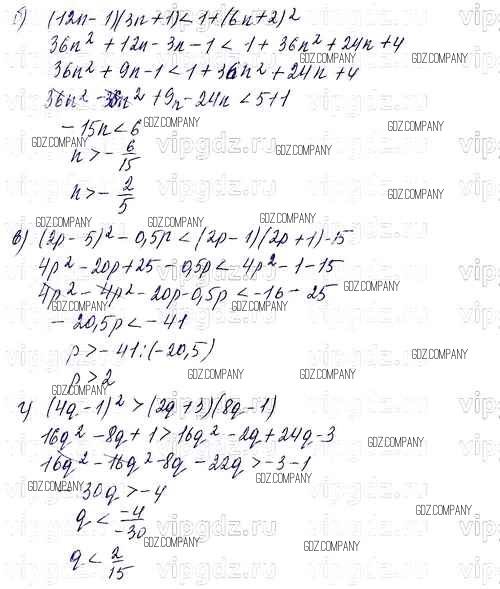 б) (12n - 1)(3n + 1) < 1 + (6n + 2)²
36n² + 12n - 3n - 1 < 1 + 36n² + 24n + 4
36n² + 9n - 1 < 1 + 36n² + 24n + 4
36n² - 36n² + 9n - 24n < 5 + 1
- 15n < 6
n > - 6/15
n > - 2/5
в) (2p - 5)² - 0,5p < (2p - 1)(2p + 1) - 15
4p² - 20p + 25 - 0,5p < 4p² - 1 - 15
4p² - 4p² - 20p - 0,5p < -16 - 25
- 20,5p < - 41
p > - 41 : (-20,5)
p > 2
г) (4q - 1)² > (2q + 3)(8q - 1)
16q² - 8q + 1 > 16q² - 2q + 24q - 3
16q² - 16q² - 8q - 22q > -3 - 1
- 30q > -4
q < -4/-30
q < 2/15